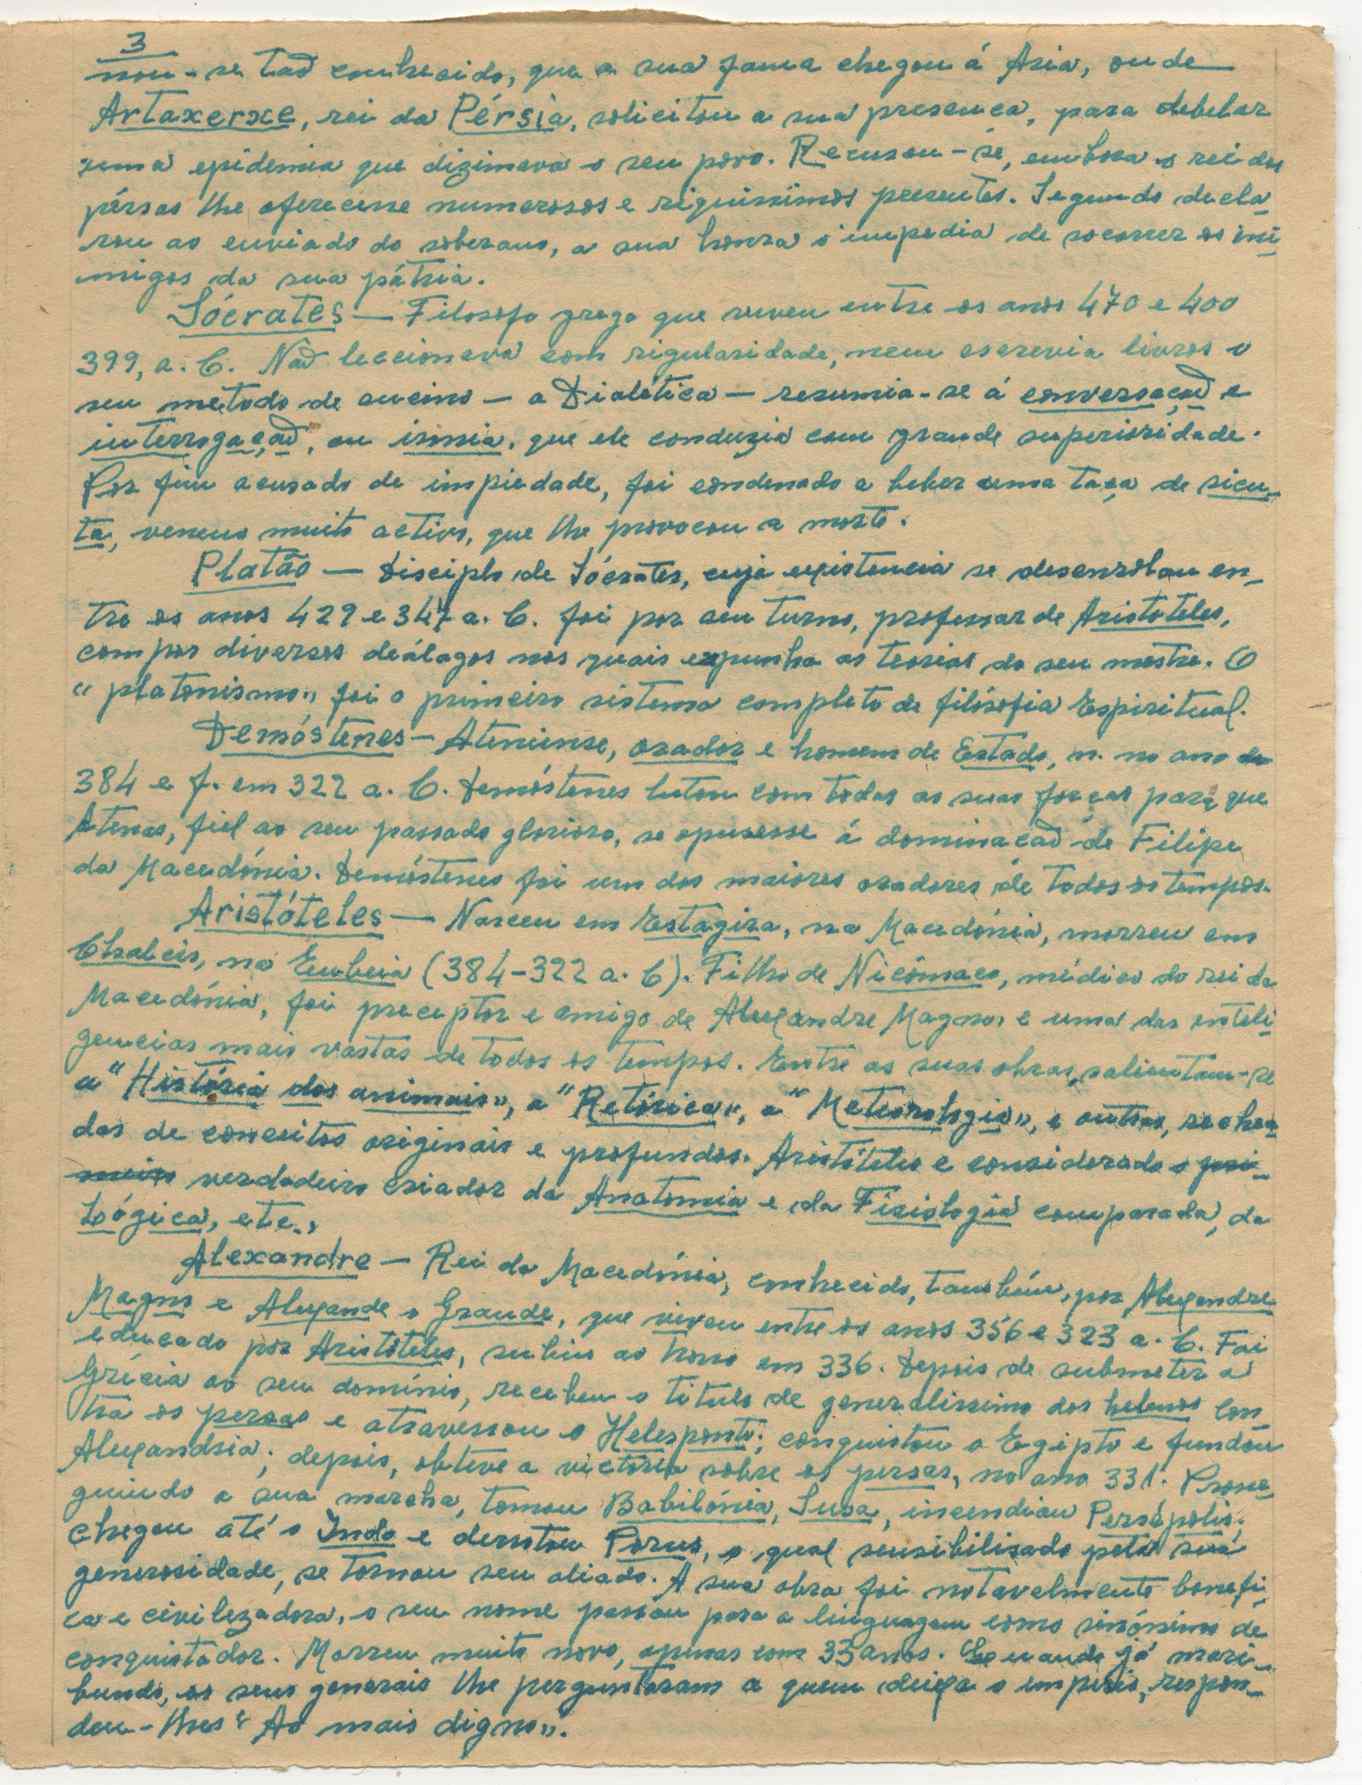 3
nou-se taõ conhecido, que a sua fama chegou á Asia, onde
Artaxerxe, rei da Pérsia, solicitou a sua presença, para debelar
uma epidemia que dizimava o seu povo. Recusou-se, embora o rei dos
pérsas lhe oferecesse numerosos e riquissimos presentes. Segundo decla
rou ao enviado do soberano, a sua honra o impedia de socorrer os ini
migos da sua pátria.
Sócrates — Filosofo grego que viveu entre os anos 470 e 400
399, a. C. Naõ leccionava com rigularidade, nem escrevia livros o
seu metodo de ensino — a Dialética — resumia-se á conversaçaõ e
interrogaçaõ, ou ironia, que ele conduzia com grande superioridade.
Por fim acusado de impiedade, foi condenado a beber uma taça de sicu-
ta, veneno muito activo, que lhe provocou a morte.
Platão — Discipulo de Sócrates, cuja existencia se desenrolou en-
tre os anos 429 e 347 a. C. foi por seu turno, professor de Aristoteles,
compos diversos deálogos nos quais expunha as teorias do seu mestre. O
"platonismo" foi o primeiro sistema completo de filósofia Espiritual.
Demóstenes — Ateniense, orador e homem de Estado, n. no ano de
384 e f. em 322 a. C. Demóstenes lutou com todas as suas forças para que
Atenas, fiel ao seu passado glorioso, se opusesse á dominacaõ de Filipe
da Macedónia. Demóstenes foi um dos maiores oradores de todos os tempos.
Aristóteles — Nasceu em Estagira, na Macedónia, morreu em
Chalcis, na Eubeia (384-322 a. C). Filho de Nicômaco, médico do rei da
Macedónia, foi preceptor e amigo de Alexandre Magno, e uma das inteli
gencias mais vastas de todos os tempos. Entre as suas obras, salientam-se
a "História dos animais", a "Retórica", a "Meteorologia", e outras, rechea
das de conceitos originais e profundos. Aristóteles e considerado o pri-
meiro verdadeiro criador da Anatomia e da Fisiologia comparada, da
Lógica, etc.,
Alexandre — Rei da Macedónia, conhecido, tambêm, por Alexandre
Magno e Alexande o Grande, que viveu entre os anos 356 e 323 a. C. Foi
educado por Aristóteles, subiu ao trono em 336. Depois de submeter a
Grécia ao seu dominio, recebeu o titulo de generalissimo dos helenos con
tra os persas e atravessou o Helesponto; conquistou o Egipto e fundou
Alexandria; depois, obteve a victória sobre os persas, no ano 331. Prose-
guindo a sua marcha, tomou Babilónia, Susa, incendiou Persépolis,
chegou até o Indo e derrotou Porus, o qual sensibilisado pela sua
generosidade, se tornou seu aliado. A sua obra foi notavelmente benefi-
ca e civilizadora, o seu nome passou para a linguagem como sinónimo de
conquistador. Morreu muito novo, apenas com 33 anos. Quando já mori-
bundo, os seus generais lhe perguntaram a quem deixa o império, respon-
deu-lhes "Ao mais digno".